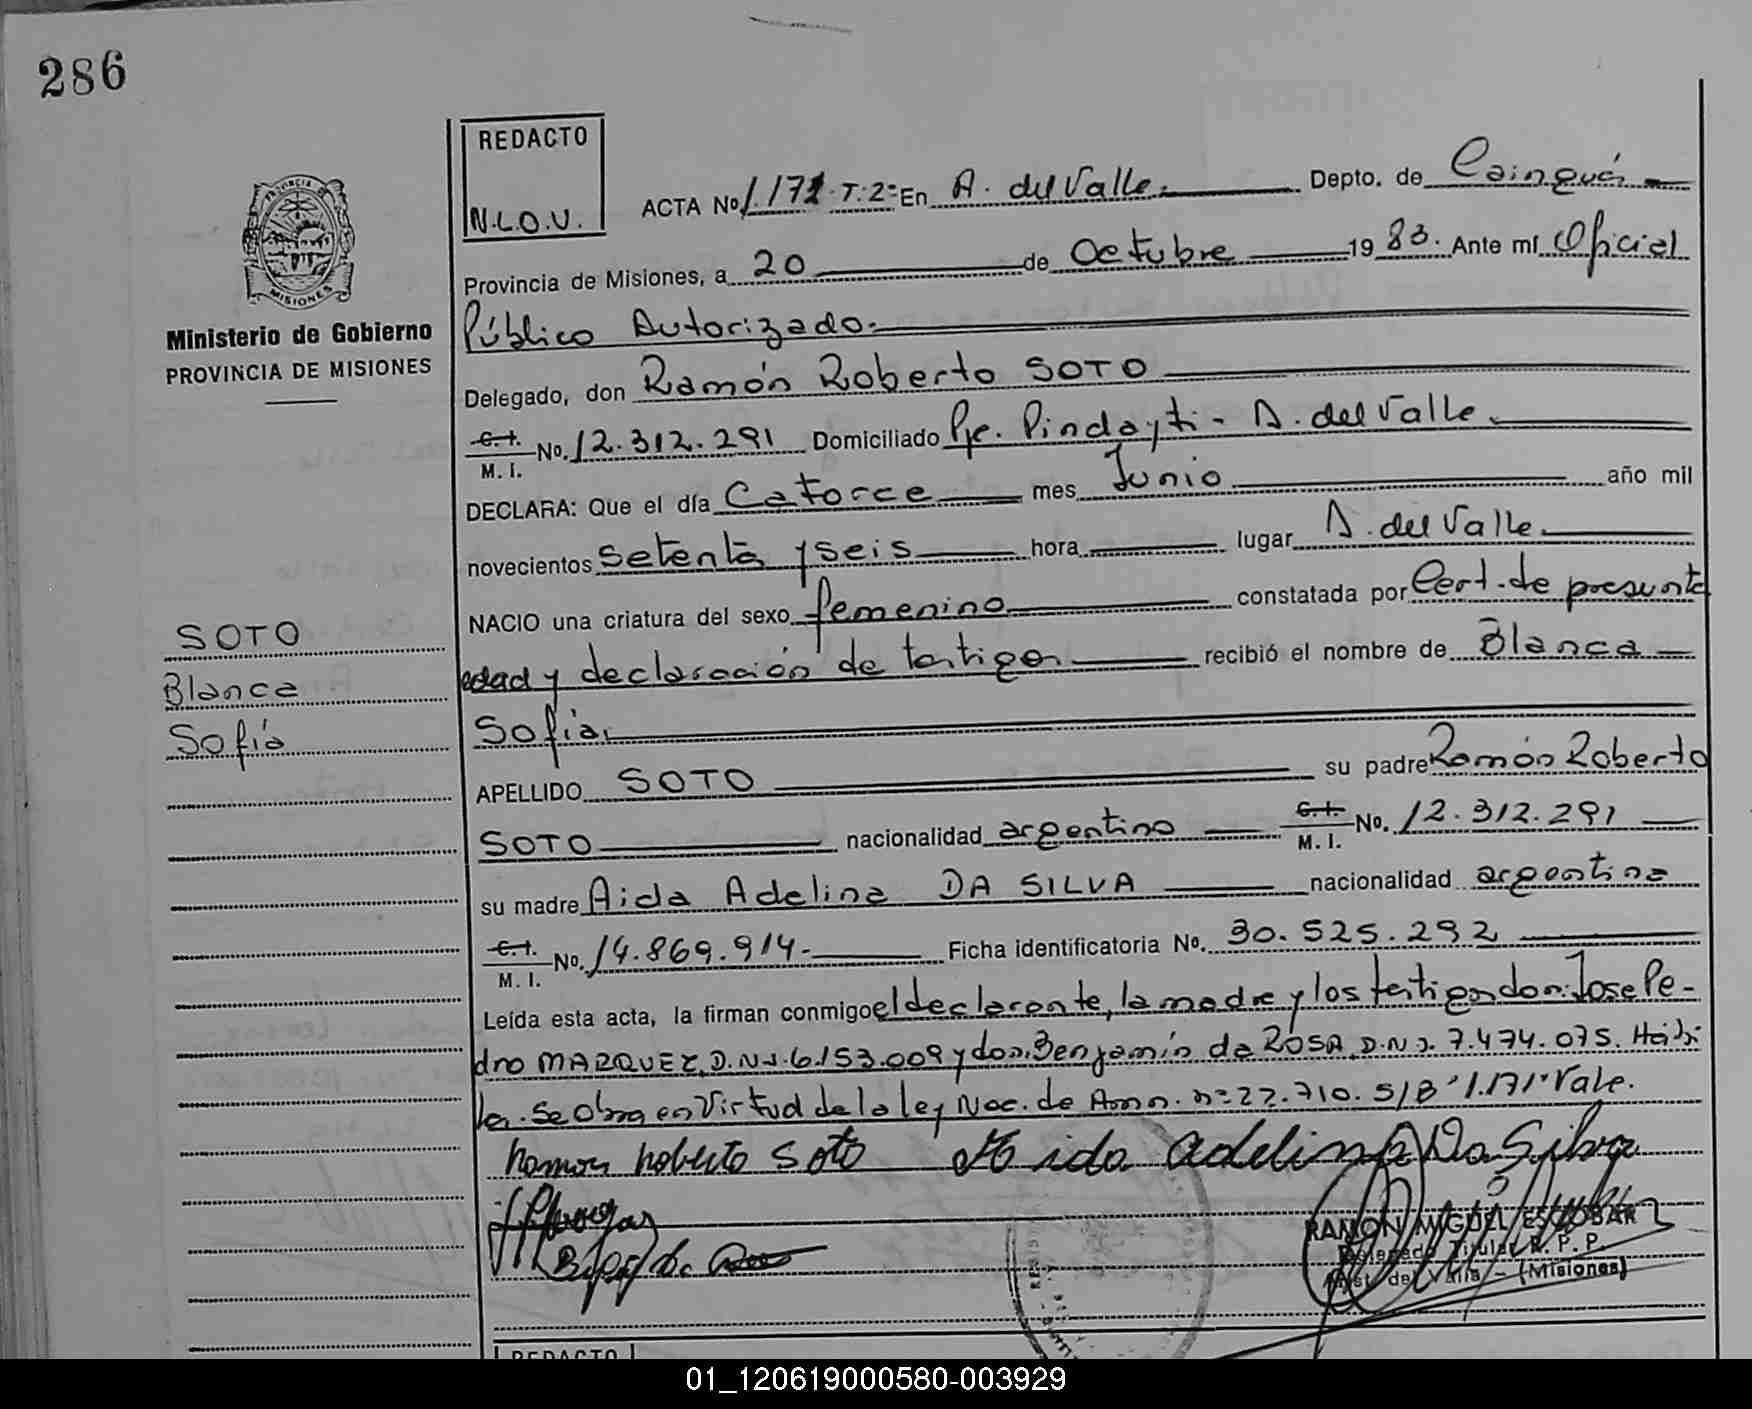 286
REDACTO
N.L.O.U.
ACTA No 1.171 T: 2º En A. del Valle. Depto. de Cainguás
Provincia de Misiones, a 20 de Octubre 1983. Ante mí Oficial
Público Autorizado.
Delegado, don Ramón Roberto SOTO
C.I. M. I. No. 12.312.291 Domiciliado Pje. Pindayti - A. del Valle.
DECLARA: Que el día Catorce mes Junio año mil
novecientos setenta y seis hora lugar A. del Valle.
NACIO una criatura del sexo femenino constatada por Cert. de presunta
edad y declaración de testigos recibió el nombre de Blanca
Sofía.
APELLIDO SOTO su padre Ramón Roberto
SOTO nacionalidad argentino C.I. M. I. No. 12.312.291
su madre Aida Adelina DA SILVA nacionalidad argentina
C.I. M. I. No. 14.869.914.- Ficha identificatoria No. 30.525.292
Leída esta acta, la firman conmigo el declarante, la madre y los testigos don: Jose Pe-
dro MARQUEZ, D.N.I. 6.153.009 y don: Benjamín da ROSA, D.N.I. 7.474.075. Hábi-
les. Se Obra en Virtud de la ley Nac. de Amn. nº 22.710. S/B "1.171" Vale.
Ramon Roberto Soto Aida Adelina Da Silva
RAMON MIGUEL ESCOBAR
Delegado Titular R. P. P.
Arist. del Valle - (Misiones)
PROVINCIA
MISIONES
Ministerio de Gobierno
PROVINCIA DE MISIONES
SOTO
Blanca
Sofía
REDACTO
01_120619000580-003929